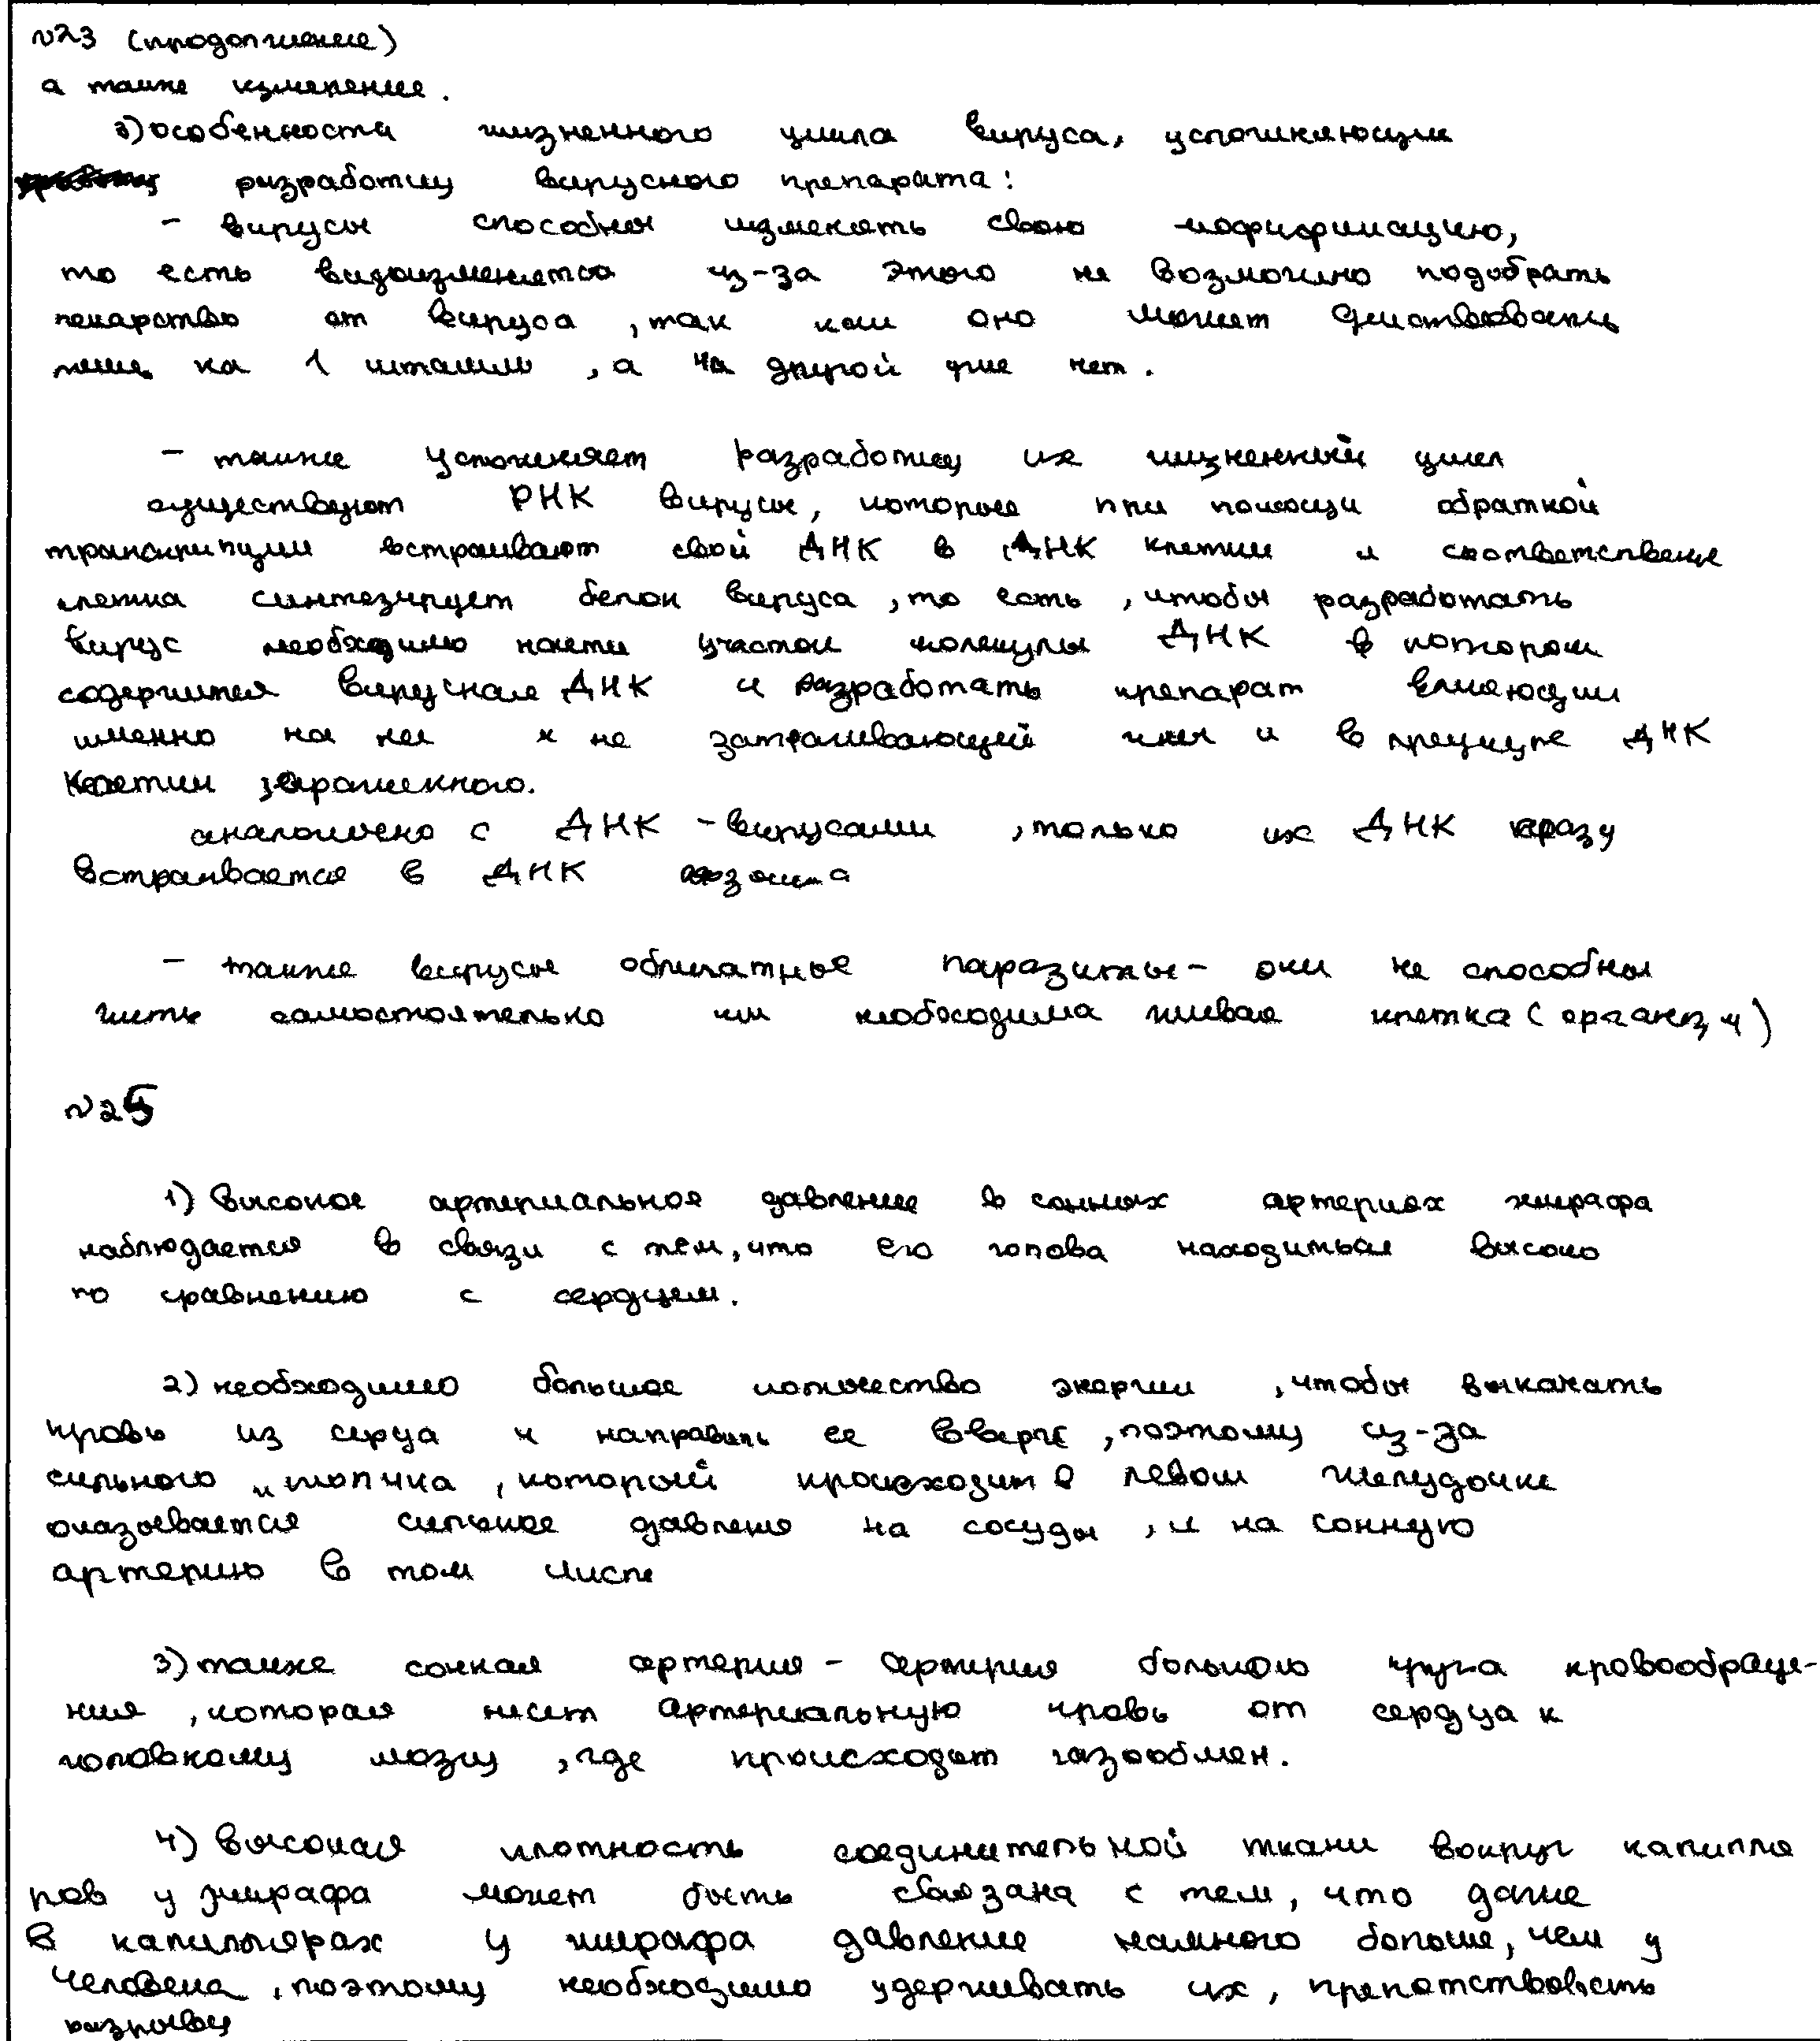 №23 (продолжение)
а также изменение.
3) особенности жизненного цикла вируса, усложняющие
разработку вирусного препарата:
- вирусы способны изменять свою
то есть видоизменятся из-за этого не возможно подобрать
лекарство от вируса, так как оно может действовать
лишь на 1 штамм, а на другой уже нет.
- также усложняет разработку их жизненный цикл
существуют РНК вирусы, которые при помощи обратной
транскрипции встраивают свой ДНК в ДНК клетки и соответственно
клетка синтезирует белок вируса, то есть, чтобы разработать
вирус необходимо найти участок молекулы ДНК в котором
содержится вирусная ДНК и разработать препарат влияющий
именно на нее и не затрагивающей и в принципе ДНК
клетки зараженного.
аналогично с ДНК - вирусами, только их ДНК сразу
встраивается в ДНК
- также вирусы облигатные паразиты - они не способны
жить самостоятельно им необходима живая клетка (организм)
№25
1) Высокое артериальное давление в сонных артериях жирафа
наблюдается в связи с тем, что его голова находиться высоко
по сравнению с сердцем.
2) необходимо большое количество энергии, чтобы выкачать
кровь из серца и направить ее вверх, поэтому из-за
сильного „толчка, который происходит в левом желудочке
оказывается сильное давление на сосуды, и на сонную
артерию в том числе
3) также сонная артерия - артерия большого круга кровообраще-
ния, которая несет артериальную кровь от сердца к
головному мозгу, где происходит газообмен.
4) Высокая плотность соединительной ткани вокруг капилля
ров у жирафа может быть связана с тем, что даже
в капиллярах у жирафа давление намного больше, чем у
человека, поэтому необходимо удерживать их, препятствовать
разрыву